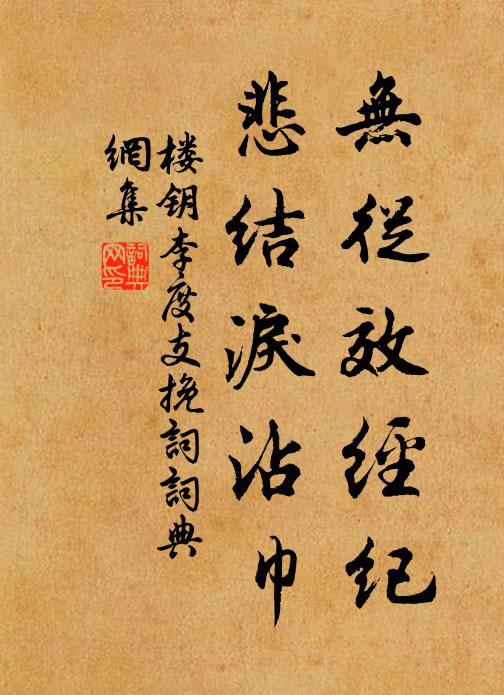 無從效經紀
悲結淚沾巾
楼钥李度支挽詞詞典
網集
詞典
网印